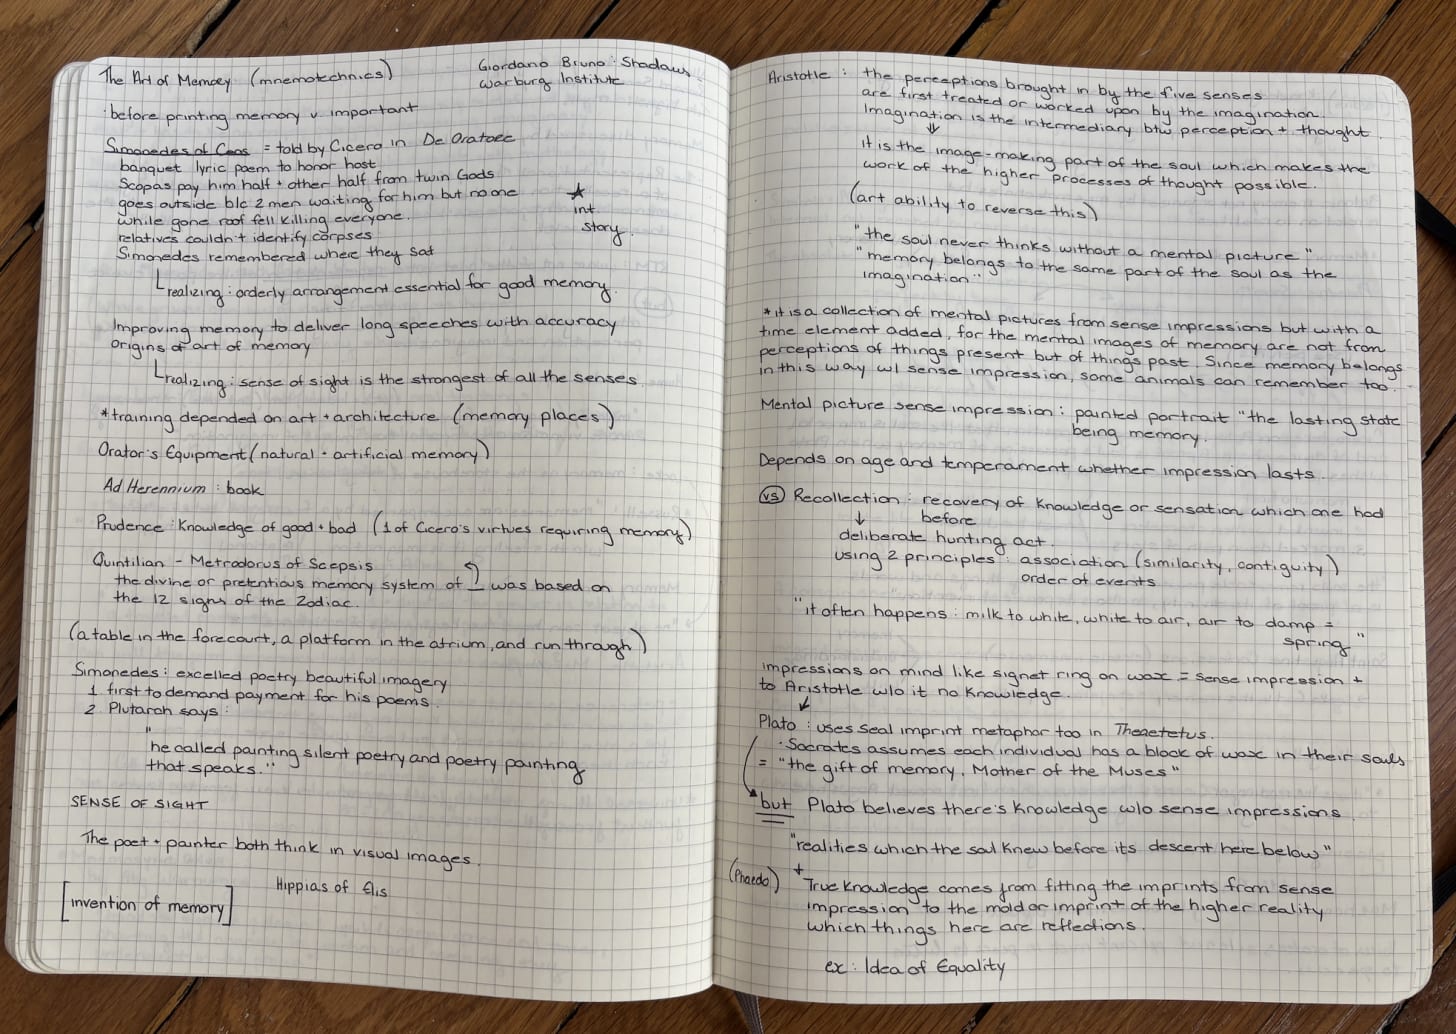 The Art of Memory (mnemotechnics)
Giordano Bruno : Shadows
Warburg Institute
· before printing memory v important
Simonedes of Ceos = told by Cicero in De Oratore
banquet lyric poem to honor host
Scopas pay him half + other half from twin Gods
goes outside b/c 2 men waiting for him but no one
while gone roof fell killing everyone.
relatives couldn't identify corpses
Simonedes remembered where they sat
★
int.
story.
realizing : orderly arrangement essential for good memory.
Improving memory to deliver long speeches with accuracy
origins of art of memory
realizing : sense of sight is the strongest of all the senses.
*training depended on art + architecture (memory places)
Orator's Equipment (natural + artificial memory)
Ad Herennium : book
Prudence : Knowledge of good + bad (1 of Cicero's virtues requiring memory)
Quintilian - Metrodorus of Scepsis
the divine or pretentious memory system of ↑ was based on
the 12 signs of the Zodiac.
(a table in the forecourt, a platform in the atrium, and run through)
Simonedes : excelled poetry beautiful imagery
1. first to demand payment for his poems.
2. Plutarch says :
"he called painting silent poetry and poetry painting
that speaks."
SENSE OF SIGHT
The poet + painter both think in visual images.
Hippias of Elis
[invention of memory]
Aristotle : the perceptions brought in by the five senses
are first treated or worked upon by the imagination.
Imagination is the intermediary btw perception + thought.
↓
it is the image-making part of the soul which makes the
work of the higher processes of thought possible.
(art ability to reverse this)
"the soul never thinks without a mental picture"
"memory belongs to the same part of the soul as the
imagination"
*it is a collection of mental pictures from sense impressions but with a
time element added, for the mental images of memory are not from
perceptions of things present but of things past. Since memory belongs
in this way w/ sense impression, some animals can remember too.
Mental picture sense impression : painted portrait "the lasting state
being memory.
Depends on age and temperament whether impression lasts.
(vs) Recollection : recovery of knowledge or sensation which one had
before
↓
deliberate hunting act.
using 2 principles : association (similarity, contiguity)
order of events
"it often happens : milk to white, white to air, air to damp =
spring"
impressions on mind like signet ring on wax = sense impression +
to Aristotle w/o it no knowledge.
↓
Plato : uses seal imprint metaphor too in Theaetetus.
· Socrates assumes each individual has a block of wax in their souls
= "the gift of memory, Mother of the Muses"
but Plato believes there's knowledge w/o sense impressions.
"realities which the soul knew before its descent here below"
(Phaedo) +
True knowledge comes from fitting the imprints from sense
impression to the mold or imprint of the higher reality
which things here are reflections.
ex : Idea of Equality